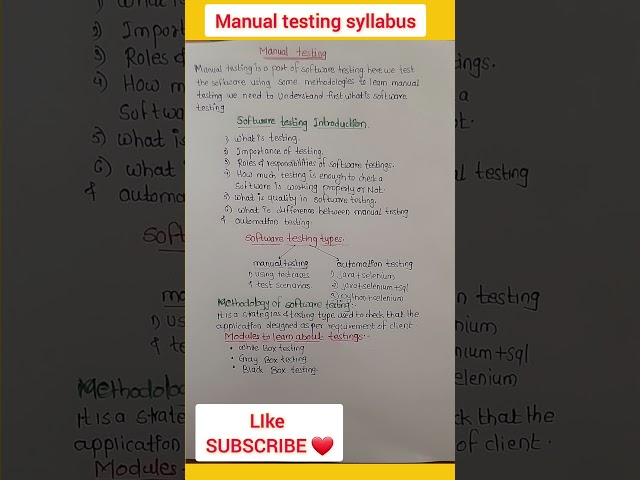 Manual testing syllabus
Manual testing
Manual testing is a part of software testing here we test
the software using some methodologies to learn manual
testing we need to understand first what is software
testing
Software testing Introduction.
1) what is testing.
2) Importance of testing.
3) Roles & responsibilities of software testings.
4) How much testing is enough to check a
Software is working properly or Not.
5) what is quality in software testing.
6) what is difference between manual testing
& automation testing.
Software testing types.
manual testing
automation testing
1) using test cases
1) java+selenium
& test scenarios.
2) java+selenium+sql
3) python+selenium
Methodology of software testing:-
It is a strategies & testing type used to check that the
application designed as per requirement of client
Modules to learn about testings:-
• White Box testing
• Gray Box testing
• Black Box testing.
LIke
SUBSCRIBE ❤️